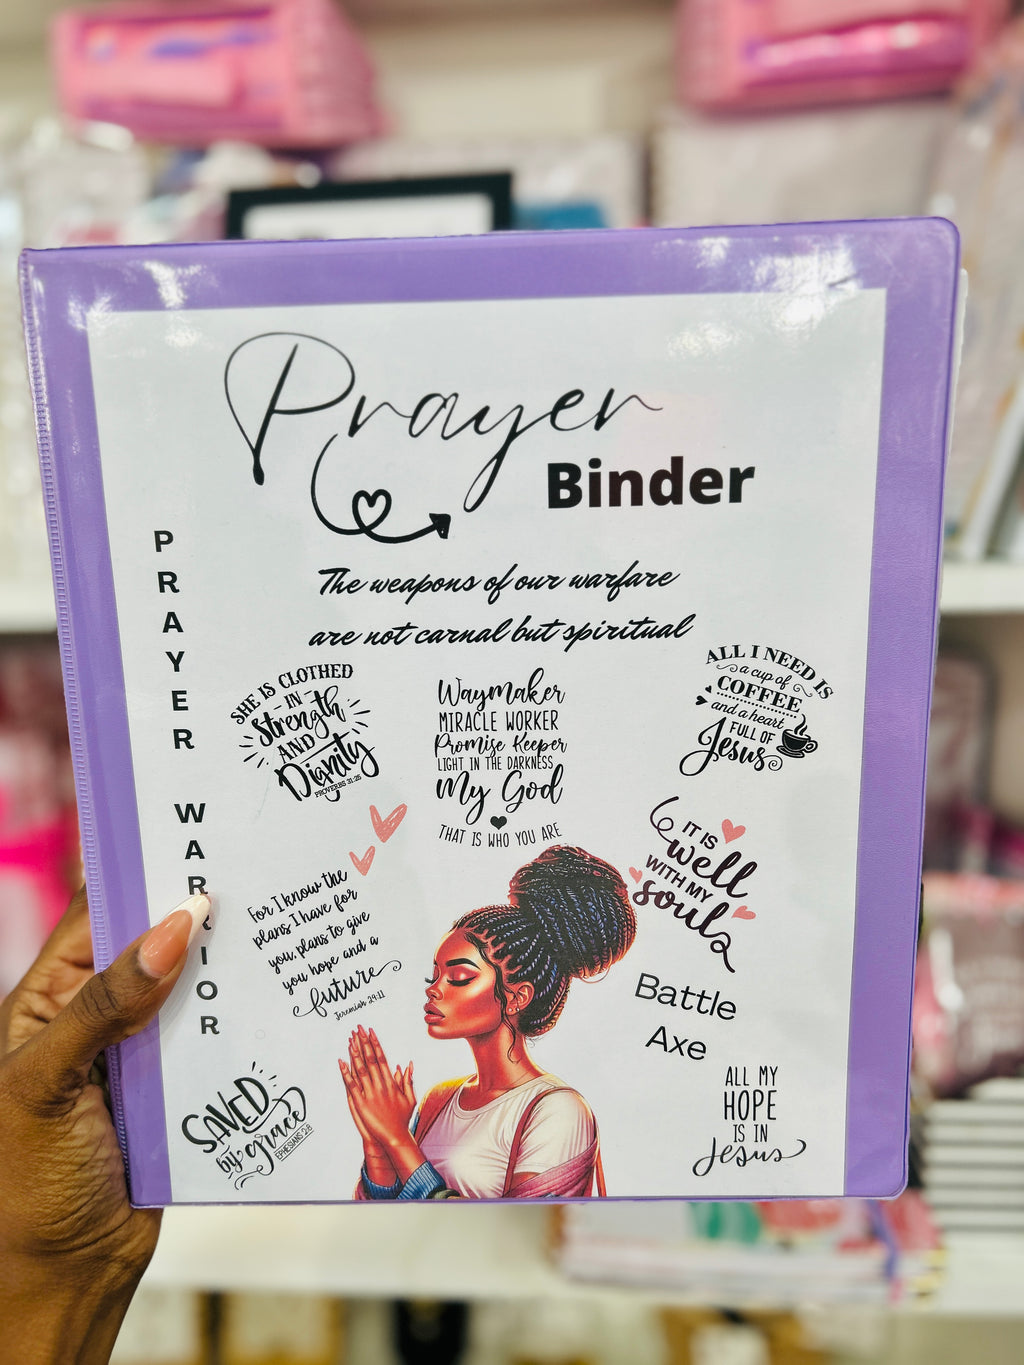 Prayer
Binder
PRAYER WARRIOR
The weapons of our warfare
are not carnal but spiritual
SHE IS CLOTHED
IN
Strength
AND
Dignity
PROVERBS 31:25
Waymaker
MIRACLE WORKER
Promise Keeper
LIGHT IN THE DARKNESS
My God
THAT IS WHO YOU ARE
ALL I NEED IS
a cup of
COFFEE
and a heart
FULL OF
Jesus
For I know the
plans I have for
you, plans to give
you hope and a
future
Jeremiah 29:11
IT IS
well
WITH MY
soul
Battle
Axe
SAVED
by grace
EPHESIANS 2:8
ALL MY
HOPE
IS IN
Jesus